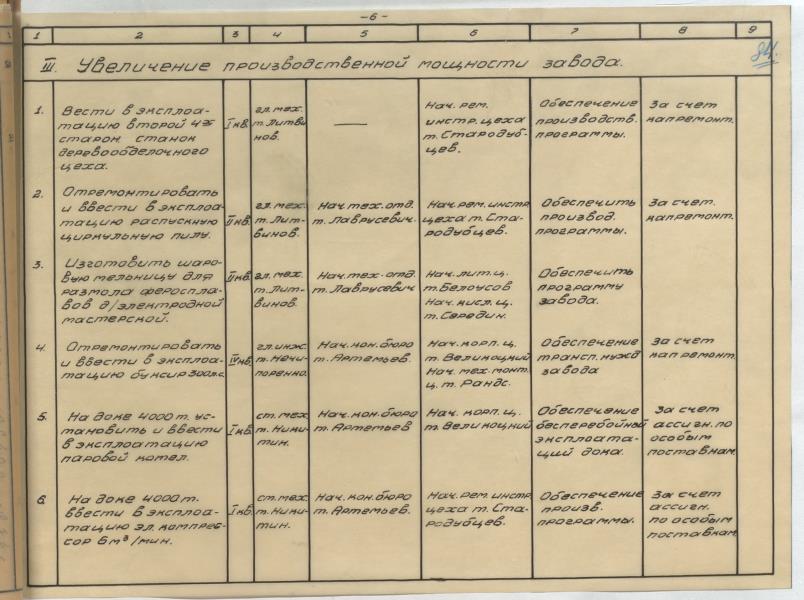 -6-
1 2 3 4 5 6 7 8 9
84.
III. Увеличение производственной мощности завода.
1. Вести в эксплоа-
тацию второй 4х
старон станок
деревообделочного
цеха.
I кв.
гл. мех.
т. Литви
нов.
—
Нач. рем.
инстр. цеха
т. Стародуб-
цев.
Обеспечение
производств.
программы.
За счет
капремонт.
2. Отремонтировать
и ввести в эксплоа-
тацию распускную
циркульную пилу.
II кв.
гл. мех.
т. Лит-
винов.
Нач. тех. отд.
т. Лаврусевич.
Нач. рем. инстр.
цеха т. Ста-
родубцев.
Обеспечить
производ.
программы.
За счет.
капремонт.
3. Изготовить шаро-
вую мельницу для
размола фероспла-
вов д/электродной
мастерской.
II кв.
гл. мех.
т. Лит-
винов.
Нач. тех. отд.
т. Лаврусевич
Нач. лит. ц.
т. Белоусов
Нач. кисл. ц.
т. Середин.
Обеспечить
программу
завода.
4. Отремонтировать
и ввести в эксплоа-
тацию буксир 300л.с.
IV кв.
гл. инж.
т. Нечи-
поренко.
Нач. кон. бюро
т. Артемьев.
Нач. корп. ц.
т. Великоцкий
Нач. мех. монт.
ц. т. Рандс.
Обеспечение
трансп. нужд
завода
За счет
капремонт.
5. На доке 4000 т. ус-
тановить и ввести
в эксплоатацию
паровой котел.
I кв.
ст. мех.
т. Ники-
тин.
Нач. кон. бюро
т. Артемьев
Нач. корп. ц.
т. Великоцкий
Обеспечение
бесперебойный
эксплоата-
ций дока.
За счет
ассигн. по
особым
поставкам.
6 На доке 4000 т.
ввести в эксплоа-
тацию эл. компрес-
сор 6 м³/мин.
I кв.
ст. мех.
т. Ники-
тин.
Нач. кон. бюро
т. Артемьев.
Нач. рем. инстр.
цеха т. Ста-
родубцев.
Обеспечение
произв.
программы.
За счет
ассигн.
по особым
поставкам